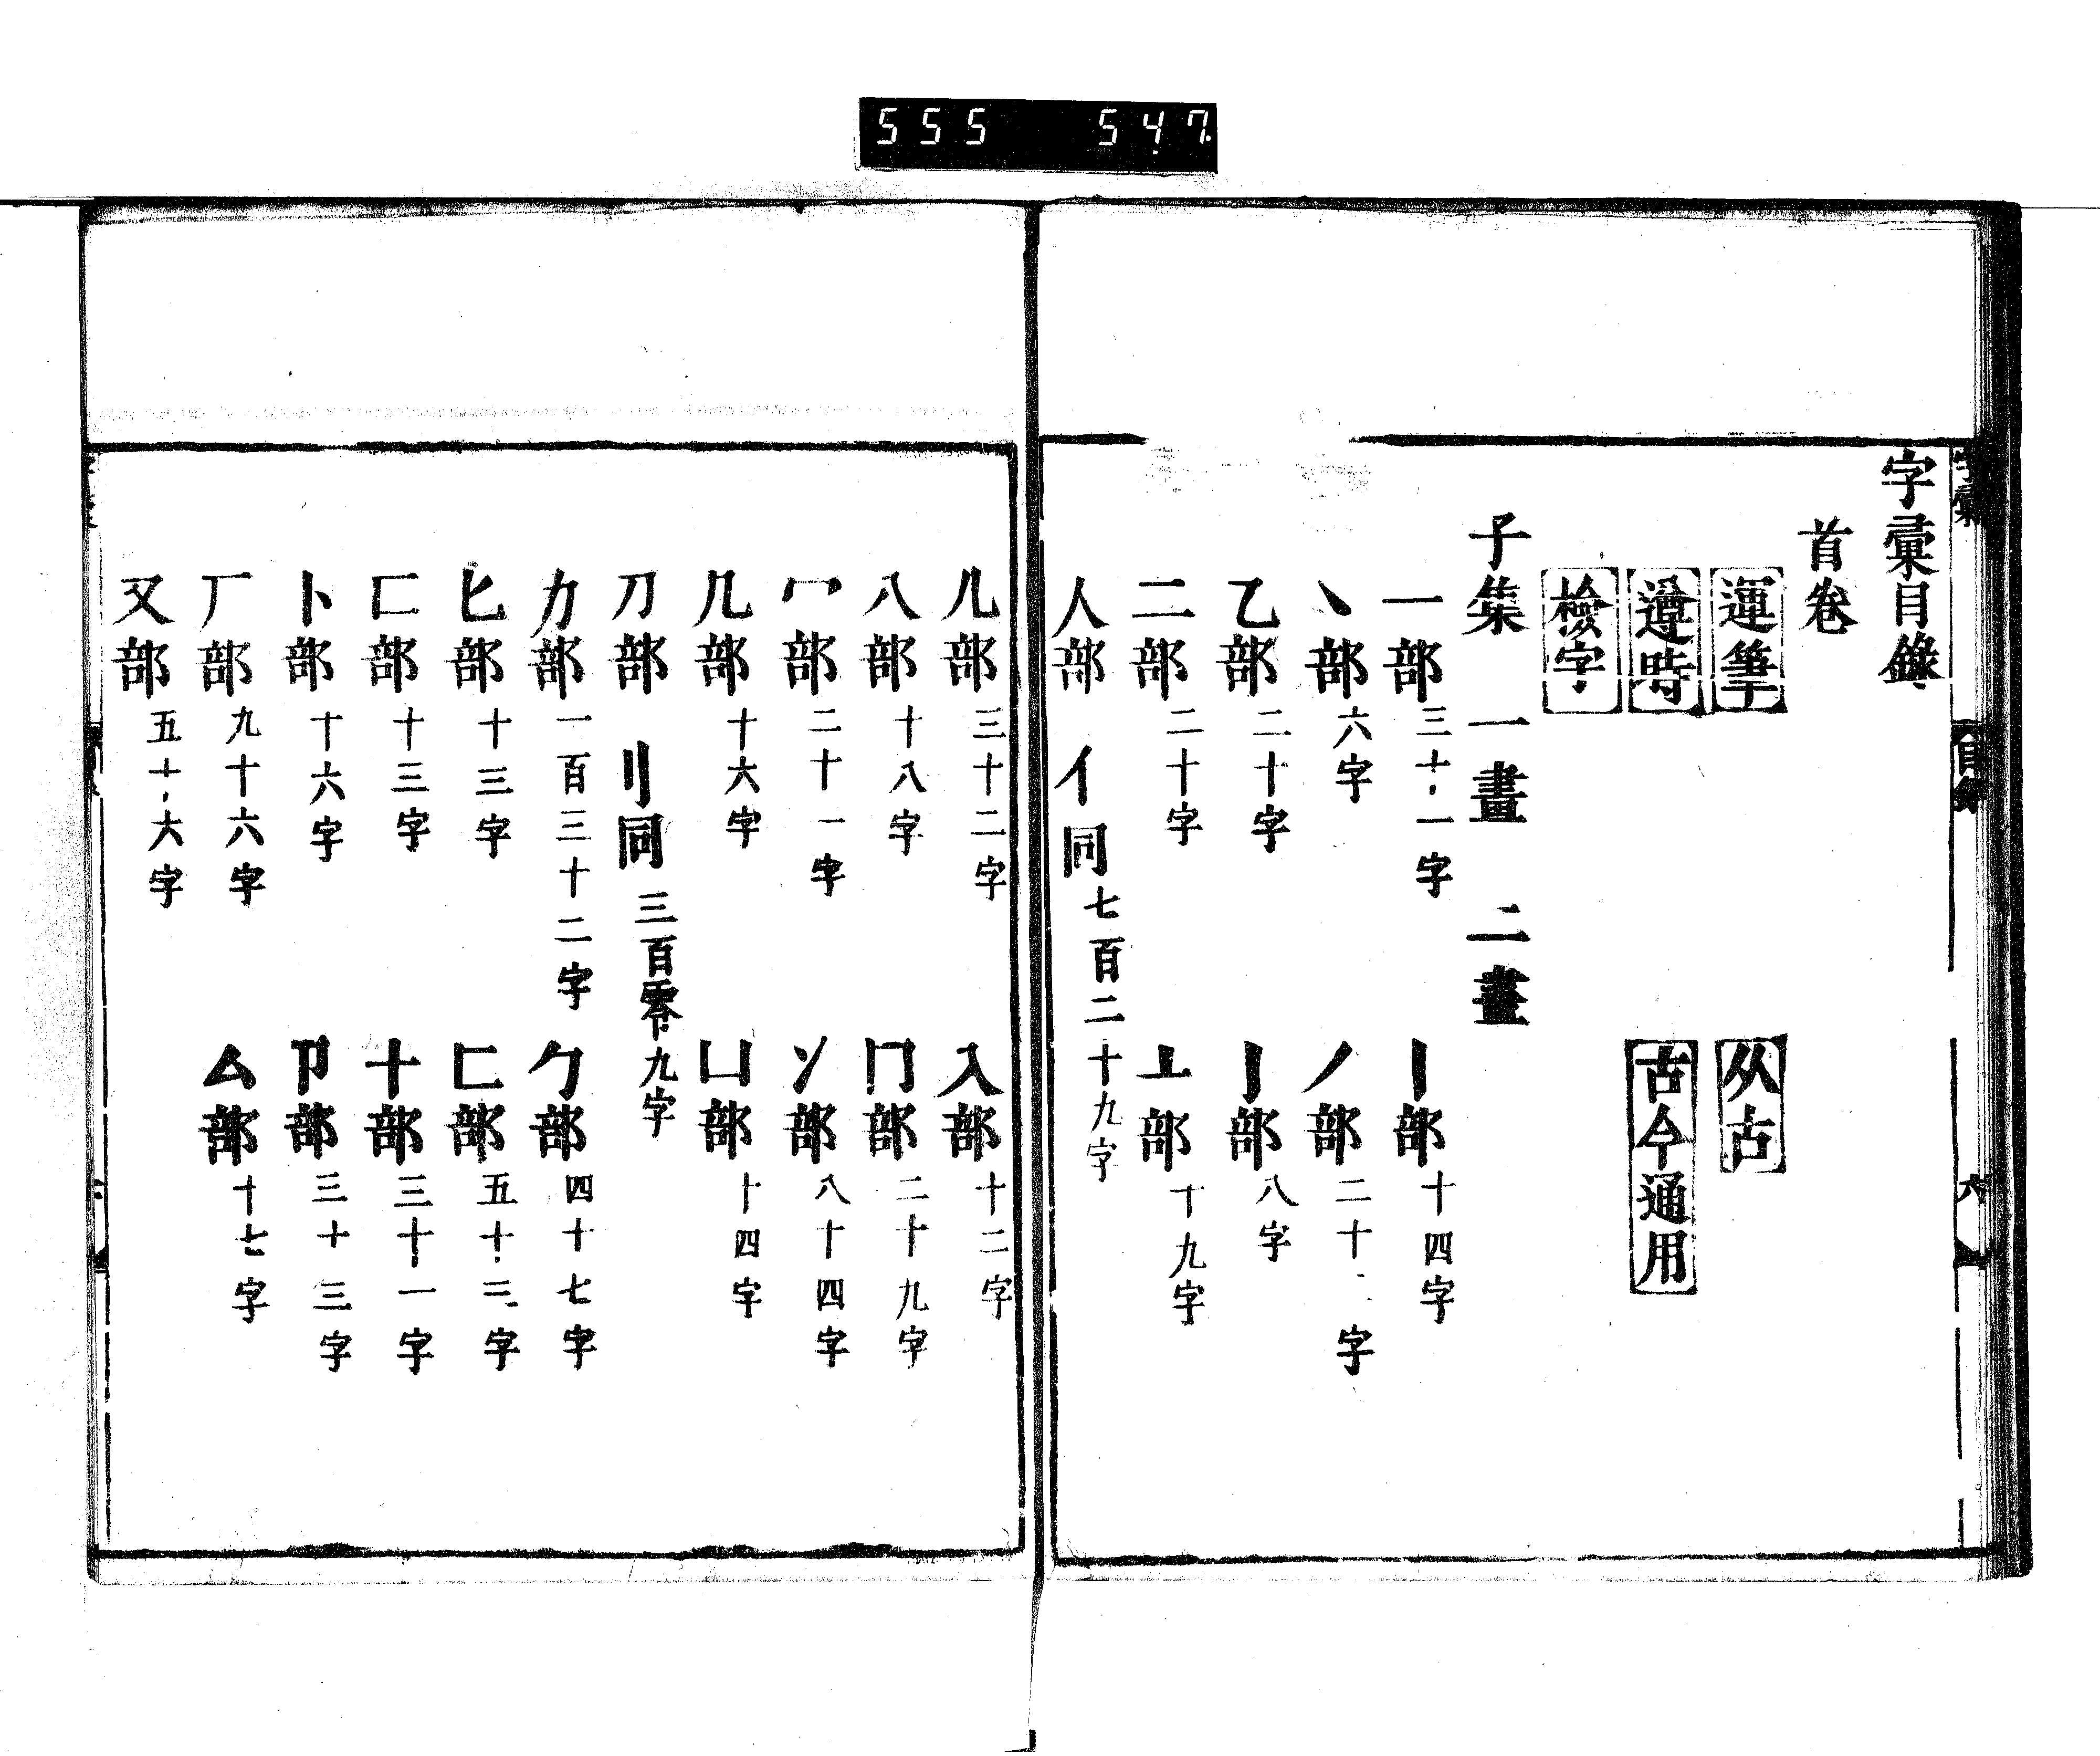 555 547
字彙目錄
首卷
運筆 从古
遵時 古今通用
檢字
子集 一畫 二畫
一部三十一字 丨部十四字
丶部六字 丿部二十字
乙部二十字 亅部八字
二部二十字 亠部十九字
人部 亻同七百二十九字
儿部三十二字 入部十二字
八部十八字 冂部二十九字
冖部二十一字 冫部八十四字
几部十六字 凵部十四字
刀部 刂同三百零九字
力部一百三十二字 勹部四十七字
匕部十三字 匸部五十二字
匚部十三字 十部三十一字
卜部十六字 卩部三十三字
厂部九十六字 厶部十七字
又部五十六字
字彙 目錄 六